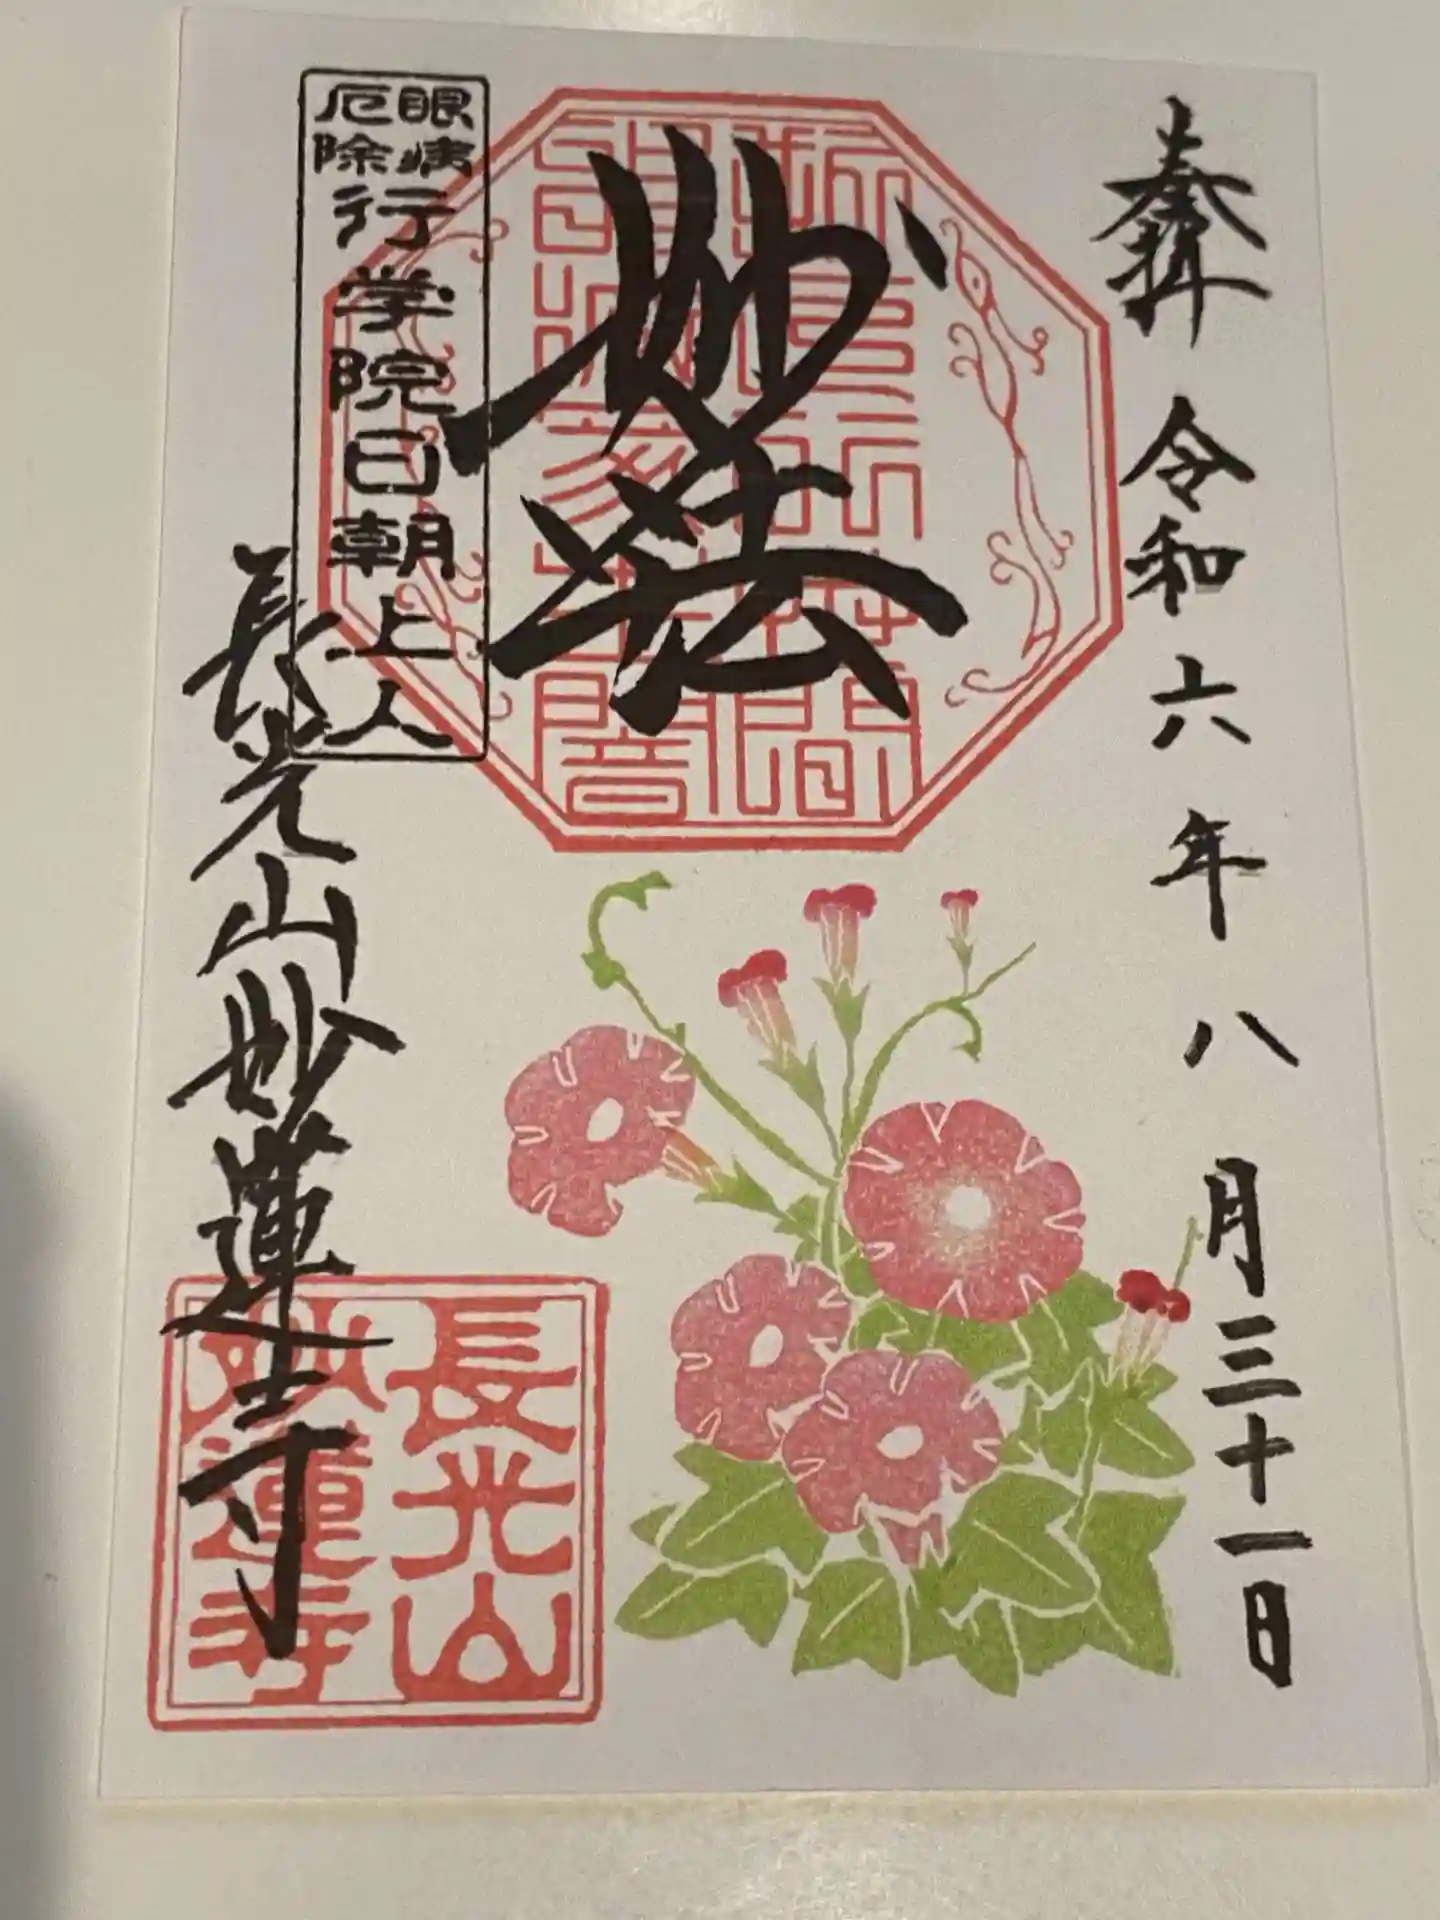 奉拝 令和六年八月三十一日
妙法
眼病
厄除
行学院日朝上人
長光山妙蓮寺
長光山
妙蓮寺